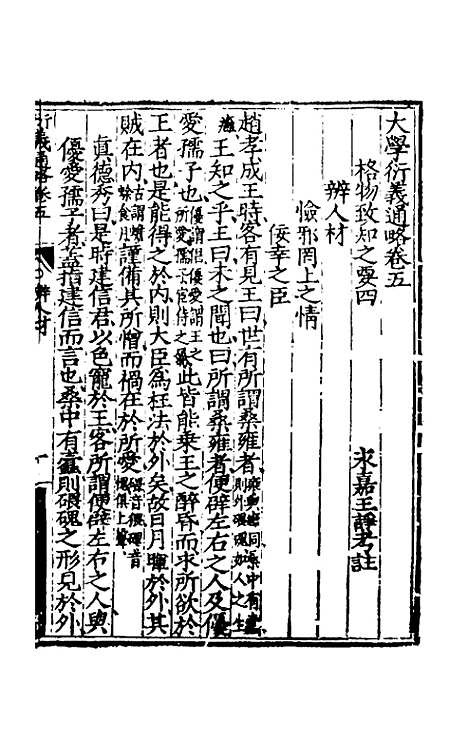 大學衍義通略卷五
永嘉王諍考註
格物致知之要四
辨人材
憸邪罔上之情
佞幸之臣
趙孝成王時客有見王曰世有所謂桑雍者雍與癰同桑中有蠹則外碨磈如人之生
癰王知之乎王曰未之聞也曰所謂桑雍者便辟左右之人及優
愛孺子也優謂倡優愛謂王之所愛孺子侍之此皆能乘王之醉昏而求所欲於
王者也是能得之於内則大臣為枉法於外矣故日月暉於外其
賊在内謹備其所憎而禍在於所愛
真德秀曰是時建信君以色寵於王客所謂便辟左右之人與
優愛孺子者蓋指建信而言也桑中有蠹則碨磈之形見於外
衍義通略卷五
辨人材